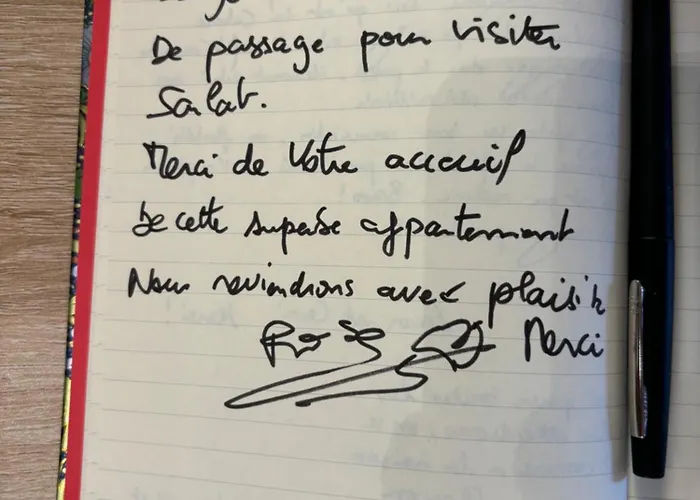 De passage pour visiter
Sarlat.
Merci de Votre accueil
De cette superbe appartement
Nous reviendrons avec plaisir
Merci